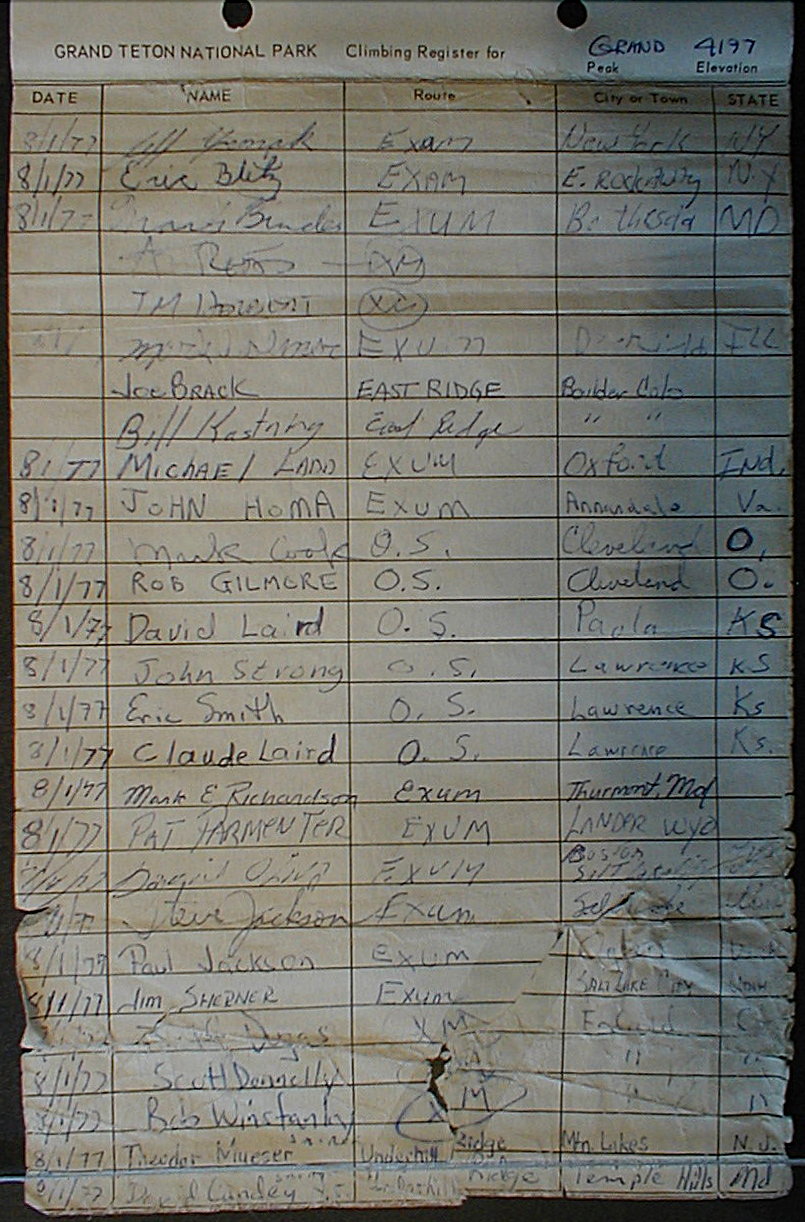 GRAND TETON NATIONAL PARK Climbing Register for GRAND 4197
Peak Elevation
DATE NAME Route City or Town STATE
8/1/77 Exam New York NY
8/1/77 Eric Blitz EXAM E. Rockaway N.Y
8/1/77 EXUM Bethesda MD
XM
TM
EXUM ILL
JOE BRACK EAST RIDGE Boulder Colo
Bill Kastning East Ridge " "
8/1/77 MICHAEL LADD EXUM Oxford Ind.
8/1/77 JOHN HOMA EXUM Annandale Va.
8/1/77 Mark Cook O.S. Cleveland O,
8/1/77 ROB GILMORE O.S. Cleveland O.
8/1/77 David Laird O.S. Paola KS
8/1/77 John Strong O.S. Lawrence KS
8/1/77 Eric Smith O.S. Lawrence Ks
8/1/77 Claude Laird O.S. Lawrence Ks.
8/1/77 Mark E Richardson Exum Thurmont, Md
8/1/77 PAT PARMENTER EXUM LANDER WYO
EXUM Boston
Steve Jackson Exum
8/1/77 Paul Jackson EXUM
8/1/77 JIM SHERNER Exum SALT LAKE CITY
XM
8/1/77 Scott Donnelly " "
8/1/77 Bob Winstanley XM " "
8/1/77 Theodor Mueser Underhill Ridge Mtn. Lakes N.J.
8/1/77 Ridge Temple Hills Md